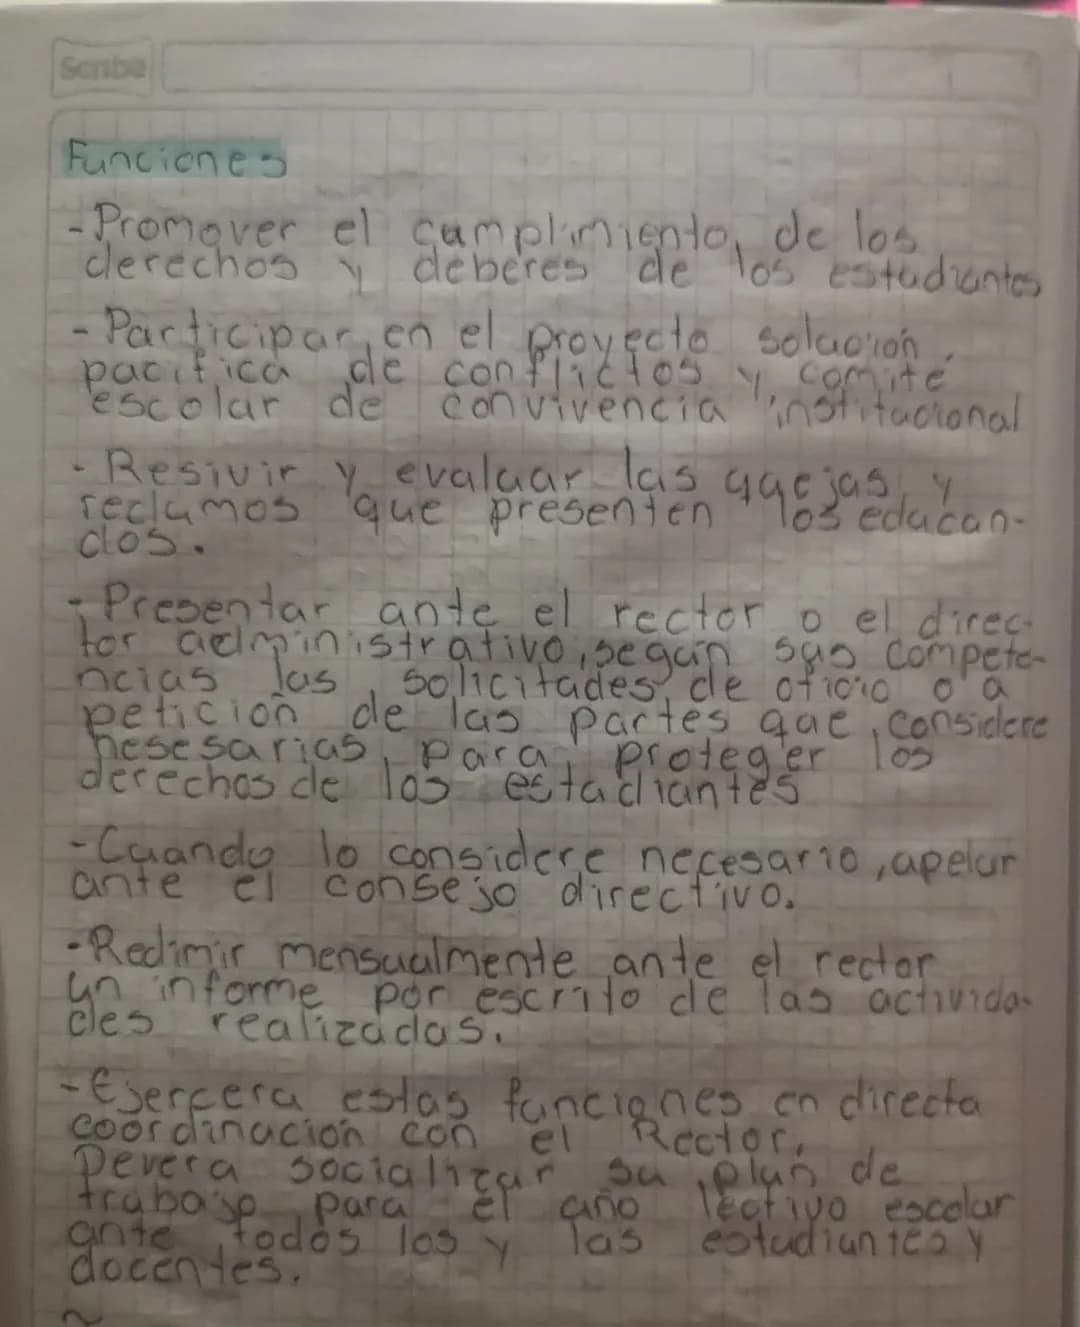 Scribe
Funciones
- Promover el cumplimiento, de los
derechos y deberes de los estudiantes
- Participar en el proyecto solución
pacifica de conflictos y comité
escolar de convivencia institucional
- Resivir y evaluar las quejas y
reclamos que presenten los educan-
dos.
- Presentar ante el rector o el direc-
tor administrativo, según sus compete-
ncias las solicitudes de oficio o a
petición de las partes que considere
nesesarias para proteger los
derechos de los estudiantes
- Cuando lo considere necesario, apelar
ante el consejo directivo.
- Redimir mensualmente ante el rector
un informe por escrito de las activida-
des realizadas.
- Ejercera estas funciones en directa
coordinación con el Rector.
Devera socializar su plan de
trabajo para el año lectivo escolar
ante todos los y las estudiantes y
docentes.